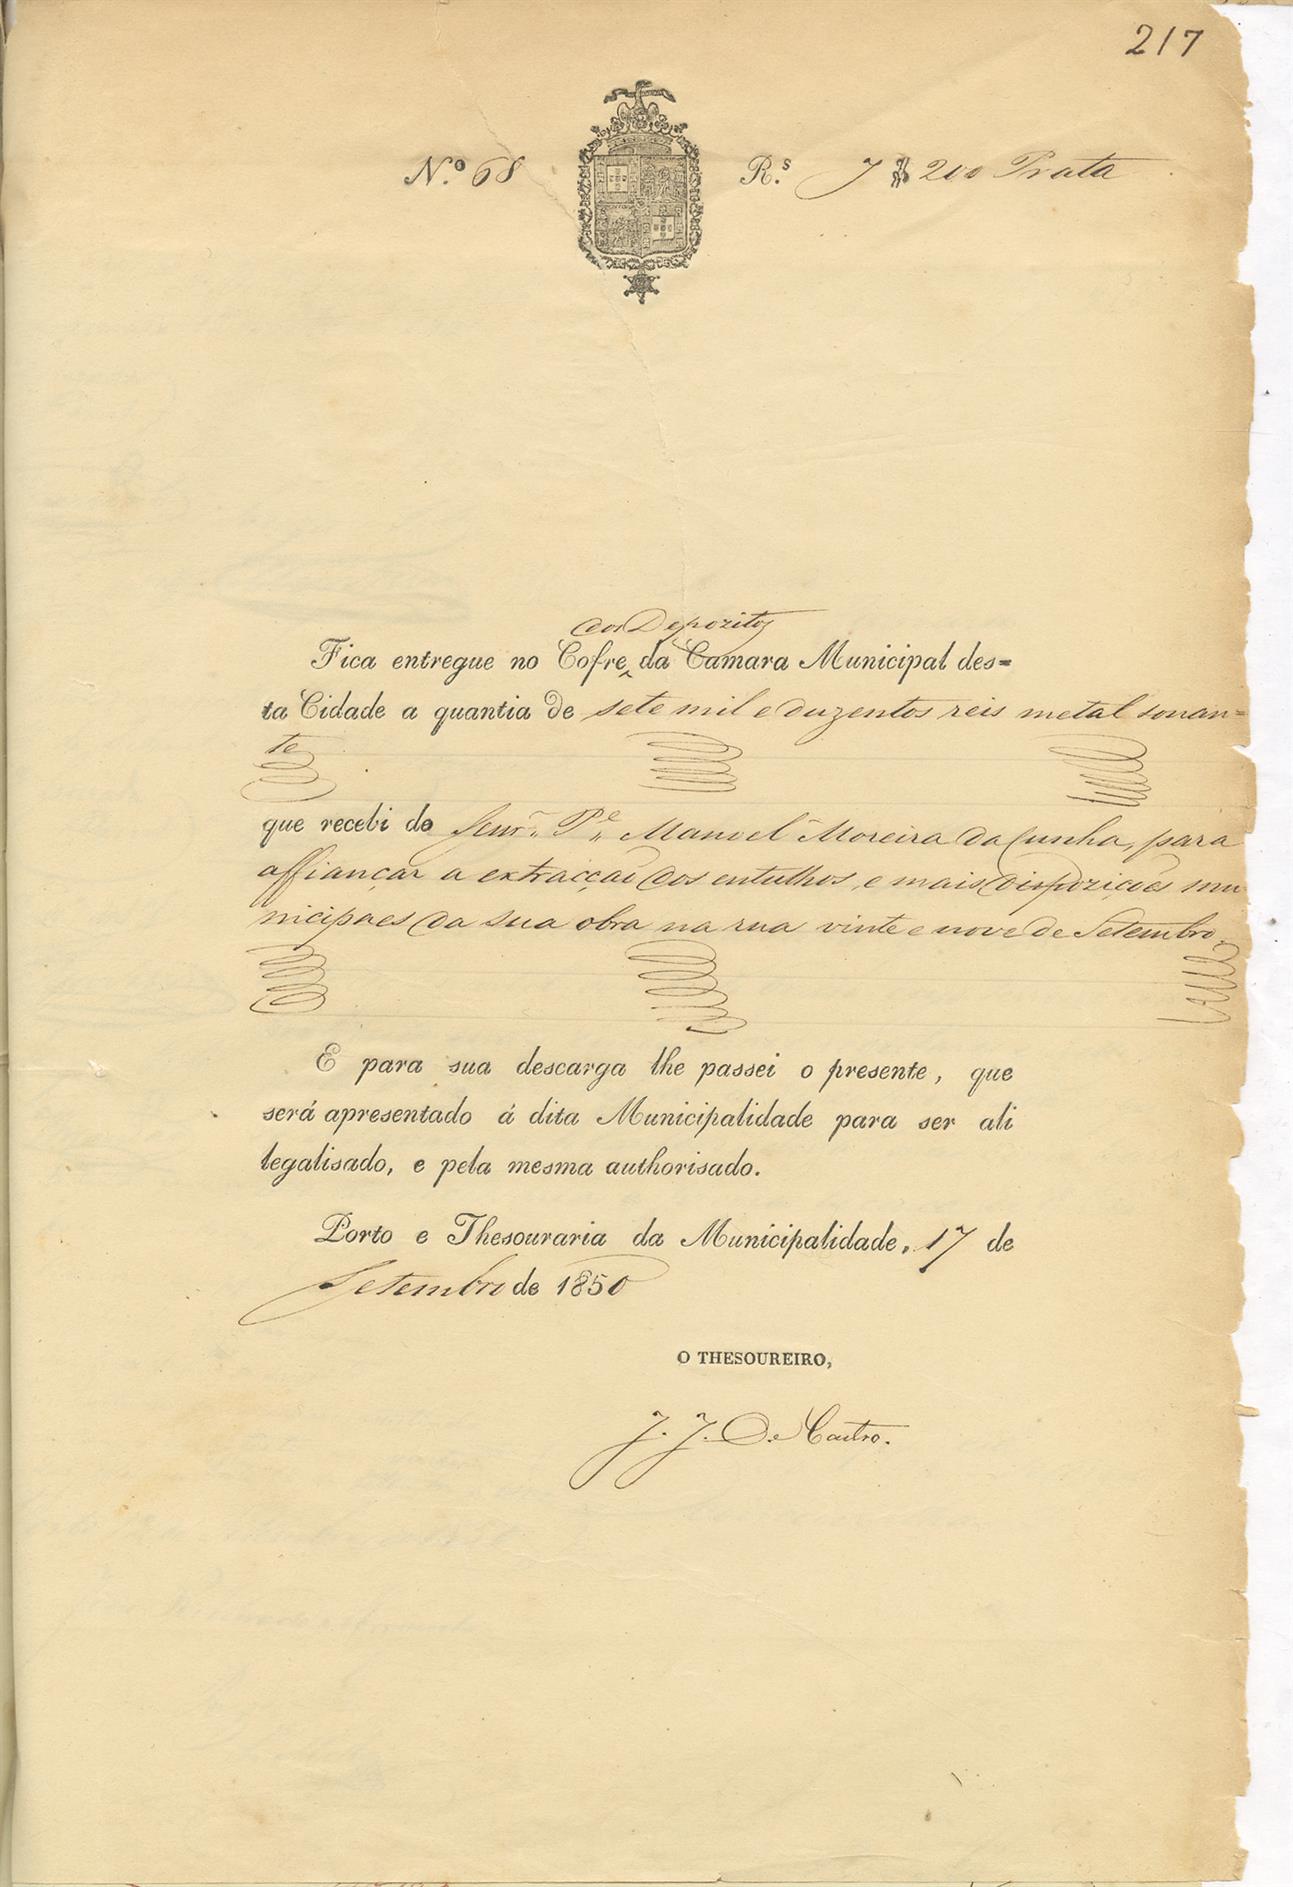 217
N.º 68
R.s 7$200 Prata
dos Depozitos
Fica entregue no Cofre da Camara Municipal des=
ta Cidade a quantia de sete mil e duzentos reis metal sonan=
te
que recebi do Senr. P.e Manoel Moreira da Cunha, para
affiançar a extracção dos entulhos, e mais dispozições mu
nicipaes da sua obra na rua vinte e nove de Setembro.
E para sua descarga lhe passei o presente, que
será apresentado á dita Municipalidade para ser ali
legalisado, e pela mesma authorisado.
Porto e Thesouraria da Municipalidade, 17 de
Setembro de 1850
O THESOUREIRO,
J. J. De Castro.